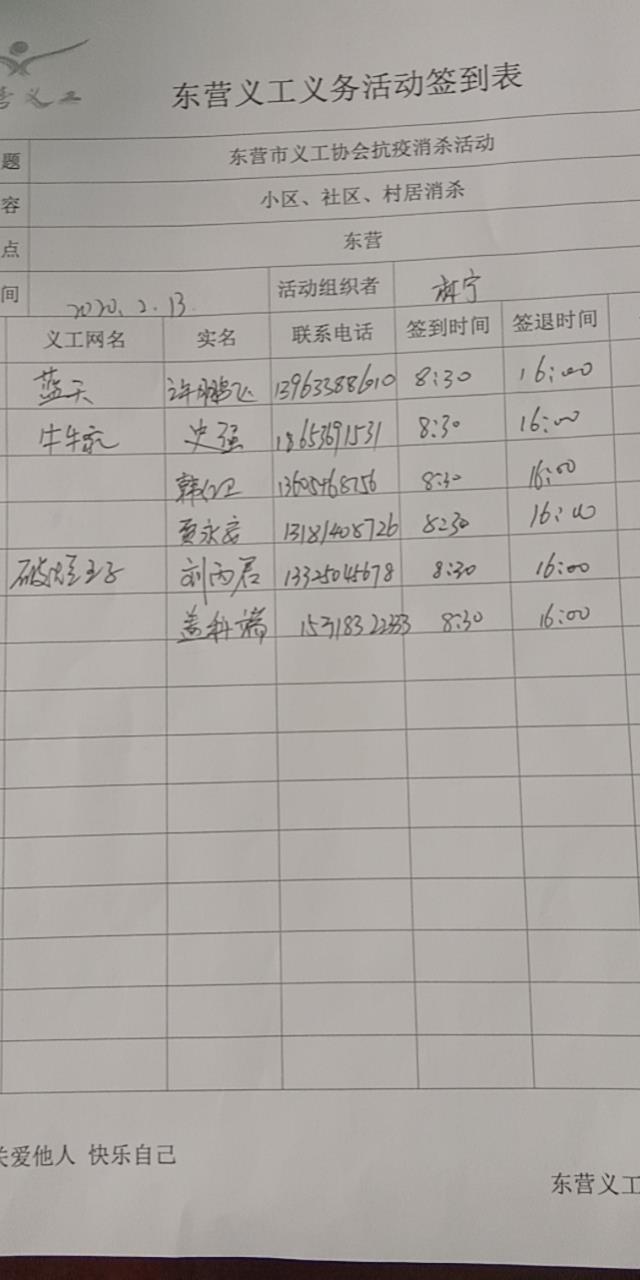 营义工
东营义工义务活动签到表
题 东营市义工协会抗疫消杀活动
容 小区、社区、村居消杀
点 东营
间 2020.2.13 活动组织者
义工网名 实名 联系电话 签到时间 签退时间
蓝天 许鹏飞 13963388610 8:30 16:00
史强 18653691531 8:30 16:00
13605468756 8:30 16:00
贾永安 13181408726 8:30 16:00
刘丙君 13325045678 8:30 16:00
盖科瑞 15318322333 8:30 16:00
关爱他人 快乐自己
东营义工